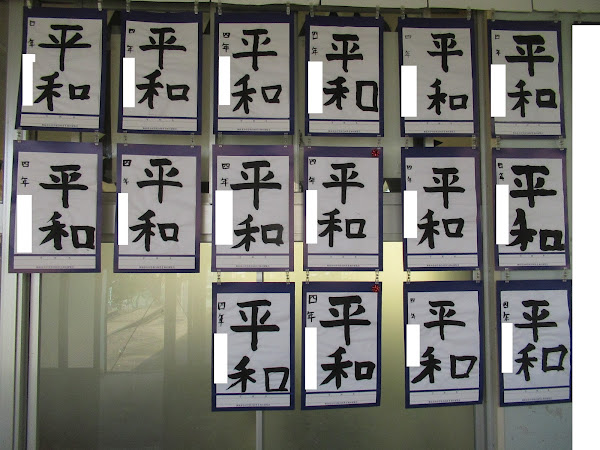 平和
四年
平和
四年
平和
四年
平和
四年
平和
四年
平和
四年
平和
四年
平和
四年
平和
四年
平和
四年
平和
四年
平和
四年
平和
四年
平和
四年
平和
四年
平和
四年